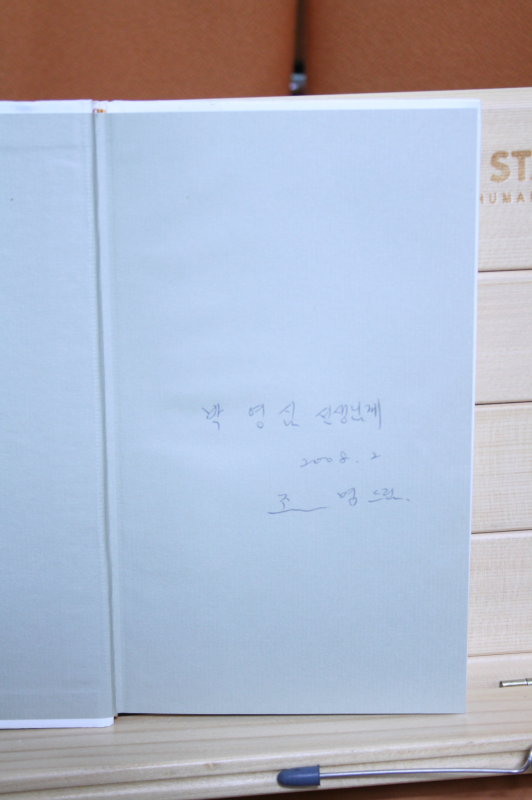 STA
HUMA
박 영 심 선생님께
2008. 2
조 명 드림.